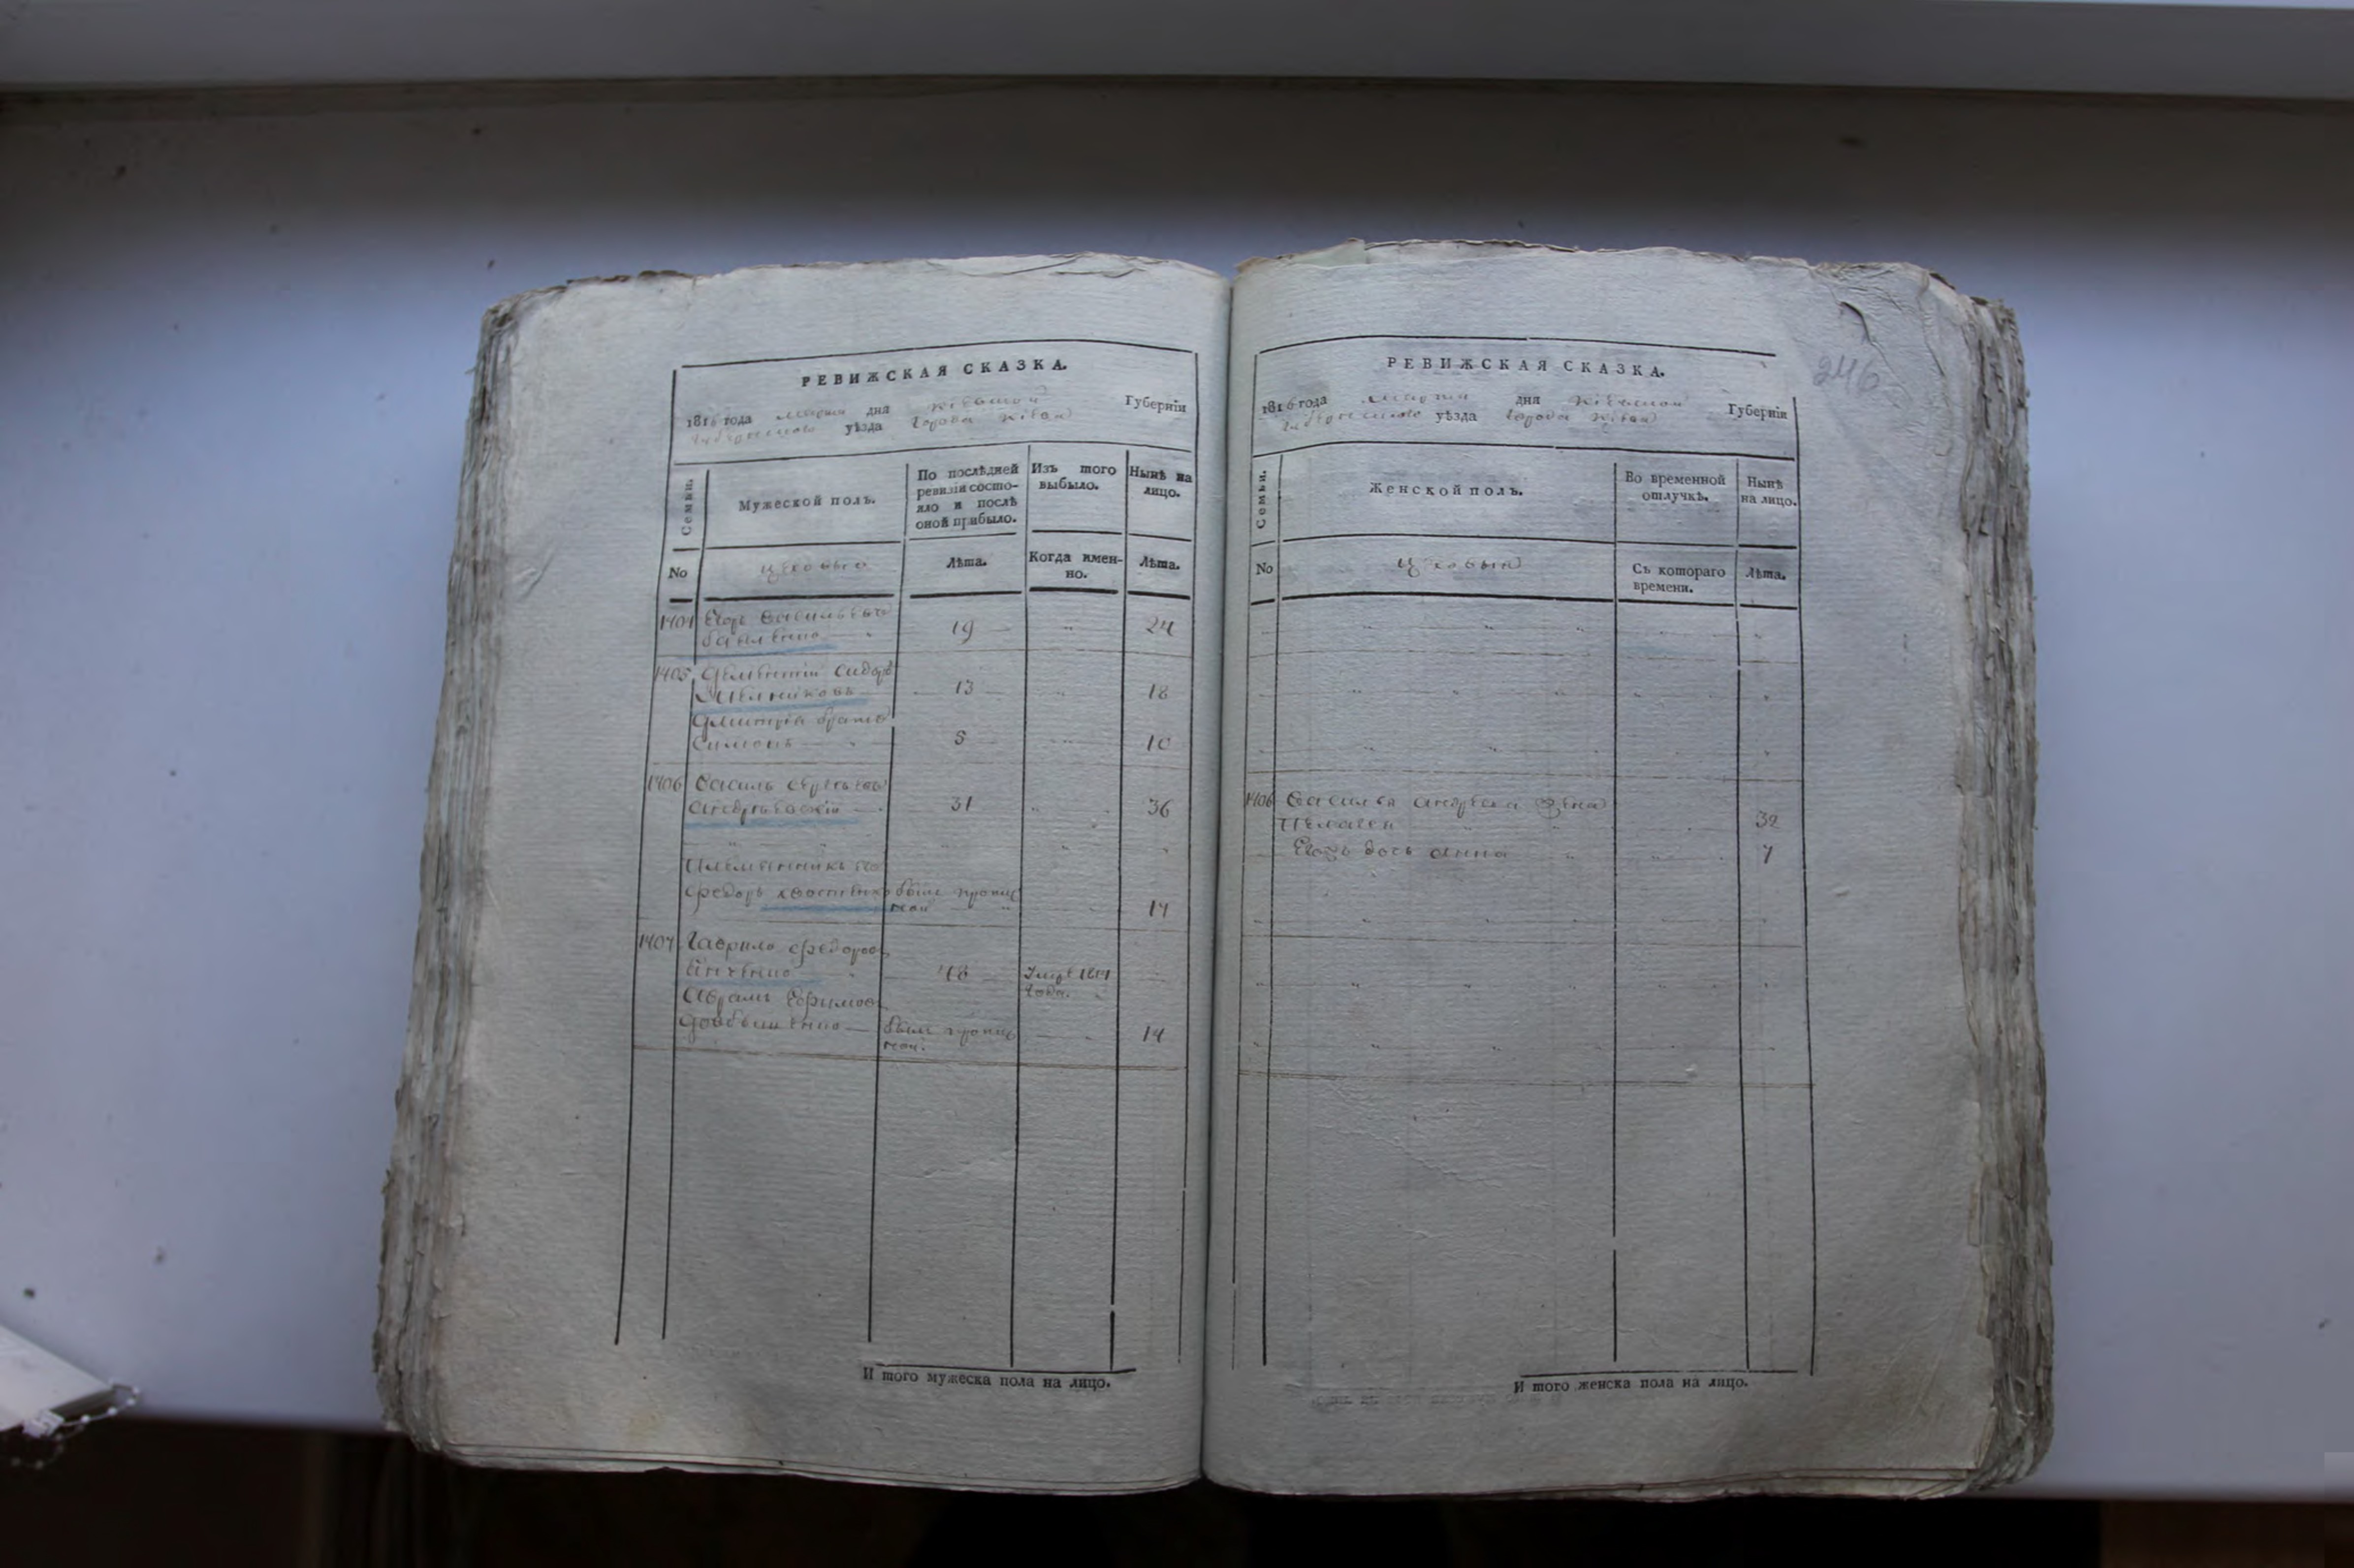 РЕВИЖСКАЯ СКАЗКА.
1816 года марта дня Кіевской Губерніи
уѣзда города Кіева
Семьи.
Мужеской полъ.
По послѣдней ревизіи состо-
яло и послѣ
оной прибыло.
Изъ того
выбыло.
Нынѣ на
лицо.
No
цеховые
Лѣта.
Когда имен-
но.
Лѣта.
1404 Егоръ Васильевъ
19 24
1405 Дементій Сидоръ
Мельниковъ 13 18
Дмитрія братъ
Симонъ 5 10
1406 Василь
Андріевскій 31 36
Племянникъ его
Федоръ былъ
17
1407 Гаврило Федоровъ
48
года.
Абрамъ Ефимовъ
былъ 14
И того мужеска пола на лицо.
246
РЕВИЖСКАЯ СКАЗКА.
1816 года марта дня Кіевской Губерніи
уѣзда города Кіева
Семьи.
Женской полъ.
Во временной
отлучкѣ.
Нынѣ
на лицо.
No
цеховыя
Съ котораго
времени.
Лѣта.
1406 Василья Андреева жена
Пелагея 32
Егожъ дочь Анна 7
И того женска пола на лицо.